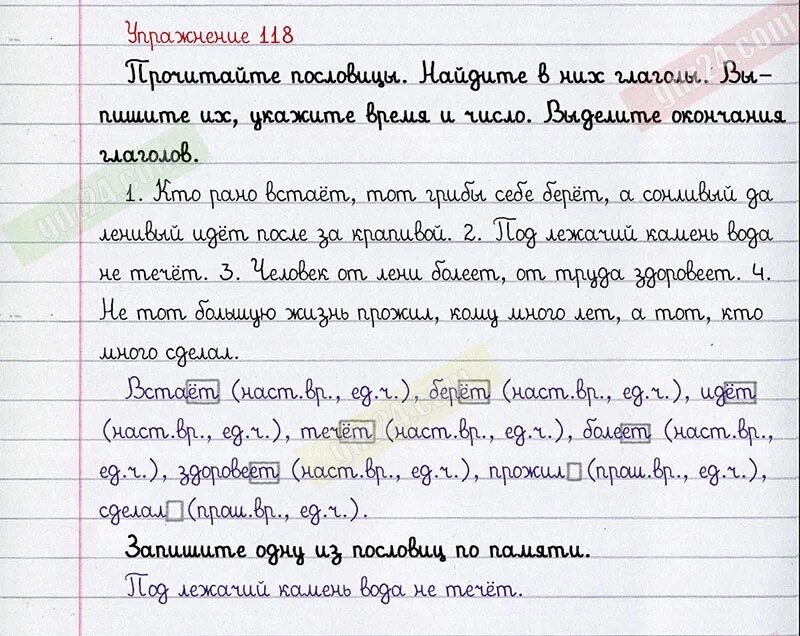 Упражнение 118
Прочитайте пословицы. Найдите в них глаголы. Вы-
пишите их, укажите время и число. Выделите окончания
глаголов.
1. Кто рано встаёт, тот грибы себе берёт, а сонливый да
ленивый идёт после за крапивой. 2. Под лежачий камень вода
не течёт. 3. Человек от лени болеет, от труда здоровеет. 4.
Не тот большую жизнь прожил, кому много лет, а тот, кто
много сделал.
Встаёт (наст.вр., ед.ч.), берёт (наст.вр., ед.ч.), идёт
(наст.вр., ед.ч.), течёт (наст.вр., ед.ч.), болеет (наст.вр.,
ед.ч.), здоровеет (наст.вр., ед.ч.), прожил (прош.вр., ед.ч.),
сделал (прош.вр., ед.ч.).
Запишите одну из пословиц по памяти.
Под лежачий камень вода не течёт.
gdz24.com
gdz24.com
gdz24.com